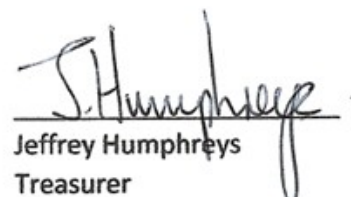 J. Humphreys
Jeffrey Humphreys
Treasurer